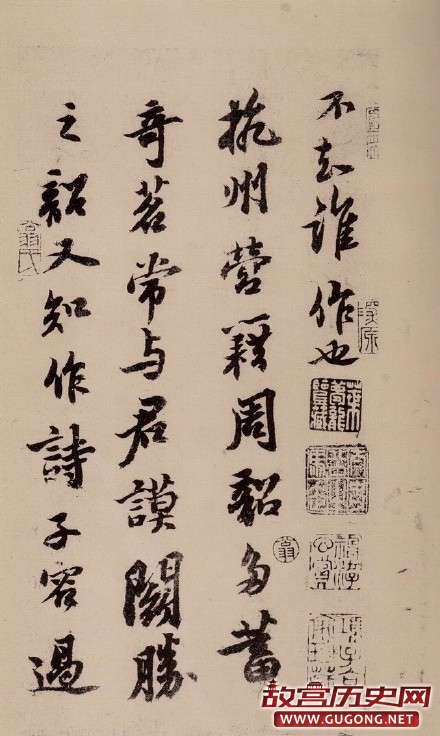 不知誰作也
杭州營籍周韶多蓄
奇茗常与君謨鬪勝
之韶又知作詩子容過
翁氏
故宫历史网
WWW.GUGONG.NET